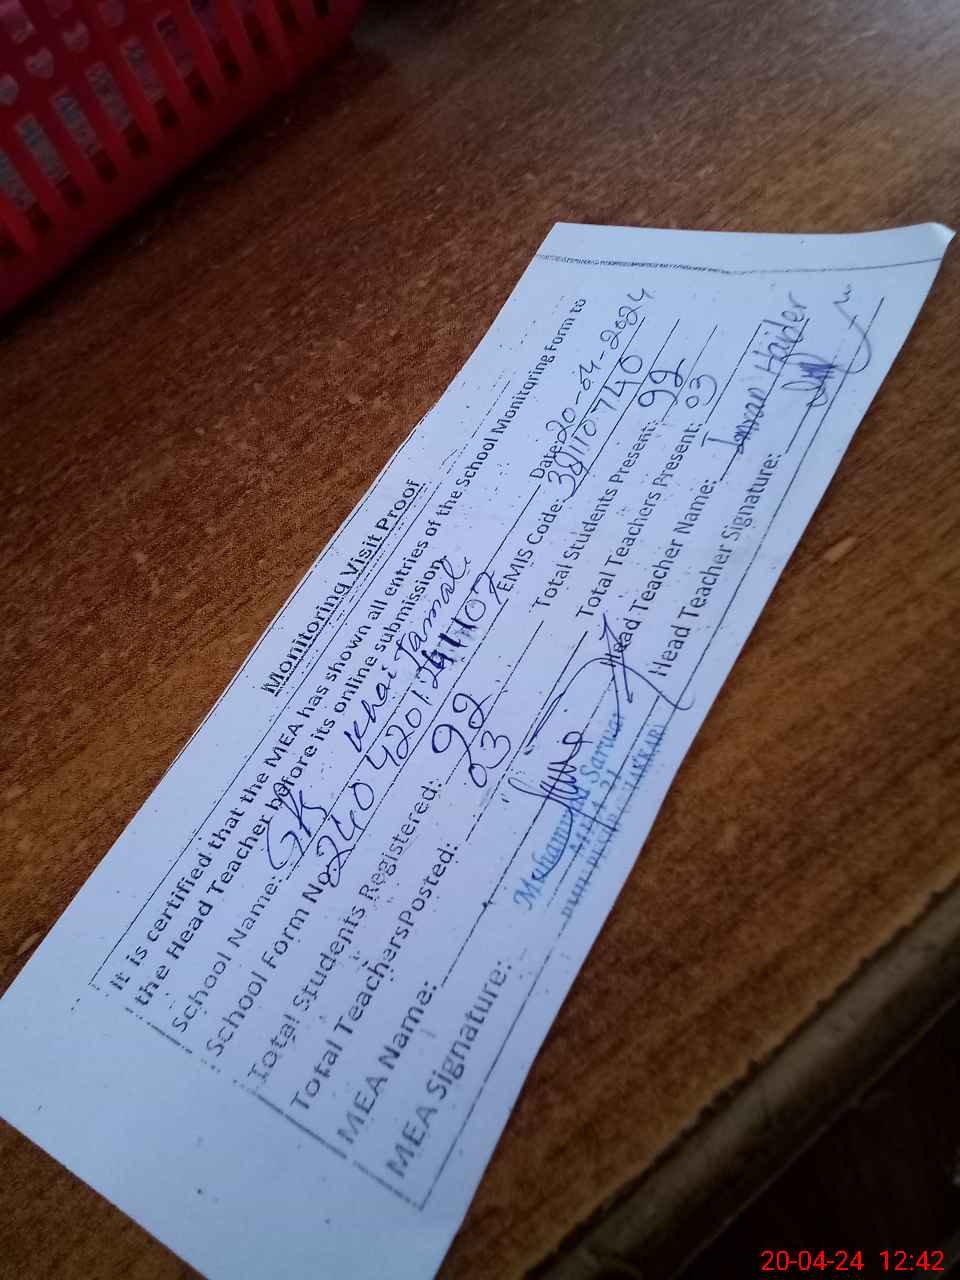 Monitoring Visit Proof
It is certified that the MEA has shown all entries of the School Monitoring Form to
the Head Teacher before its online submission.
School Name: GPS Khai Jamal. Date: 20-04-2024
School Form No: EMIS Code: 38110740
Total Students Registered: 92 Total Students Present: 92
Total TeachersPosted: 03 Total Teachers Present: 03
MEA Name: Muhammad Sarwar Head Teacher Name: Imran Haider
MEA Signature: Head Teacher Signature:
20-04-24 12:42